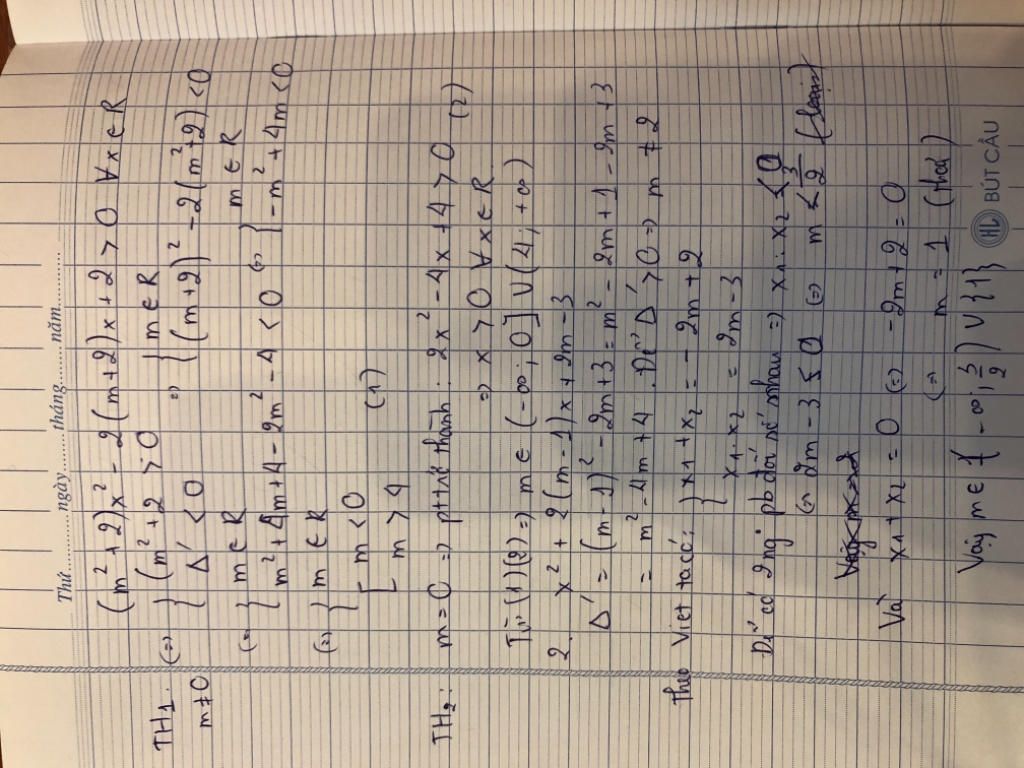 Thứ ............ ngày ............ tháng ............ năm ............
(m² + 2)x² - 2(m+2)x + 2 > 0 ∀x ∈ R
TH1: m ≠ 0 (=) { m² + 2 > 0 / Δ' < 0 => { m ∈ R / (m+2)² - 2(m²+2) < 0
(=) { m ∈ R / m² + 4m + 4 - 2m² - 4 < 0 (=) { m ∈ R / -m² + 4m < 0
(=) { m ∈ R / [ m < 0 / m > 4 (1)
TH2: m = 0 => pt trở thành: 2x² - 4x + 4 > 0
=> x > 0 ∀x ∈ R (2)
Từ (1)(2) => m ∈ (-∞; 0] ∪ (4; +∞)
2. x² + 2(m-1)x + 2m - 3
Δ' = (m-1)² - 2m + 3 = m² - 2m + 1 - 2m + 3
= m² - 4m + 4. Để Δ' > 0 => m ≠ 2
Theo Viet ta có: { x1 + x2 = -2m + 2
{ x1 . x2 = 2m - 3
Để có 2 ng° pb đối nhau => x1 . x2 < 0
(=) 2m - 3 < 0 (=) m < 3/2 (loại)
Và x1 + x2 = 0 (=) -2m + 2 = 0
(=) m = 1 (thoả)
Vậy m ∈ { -∞; 3/2 ) ∪ {1}
HL BÚT CÂU